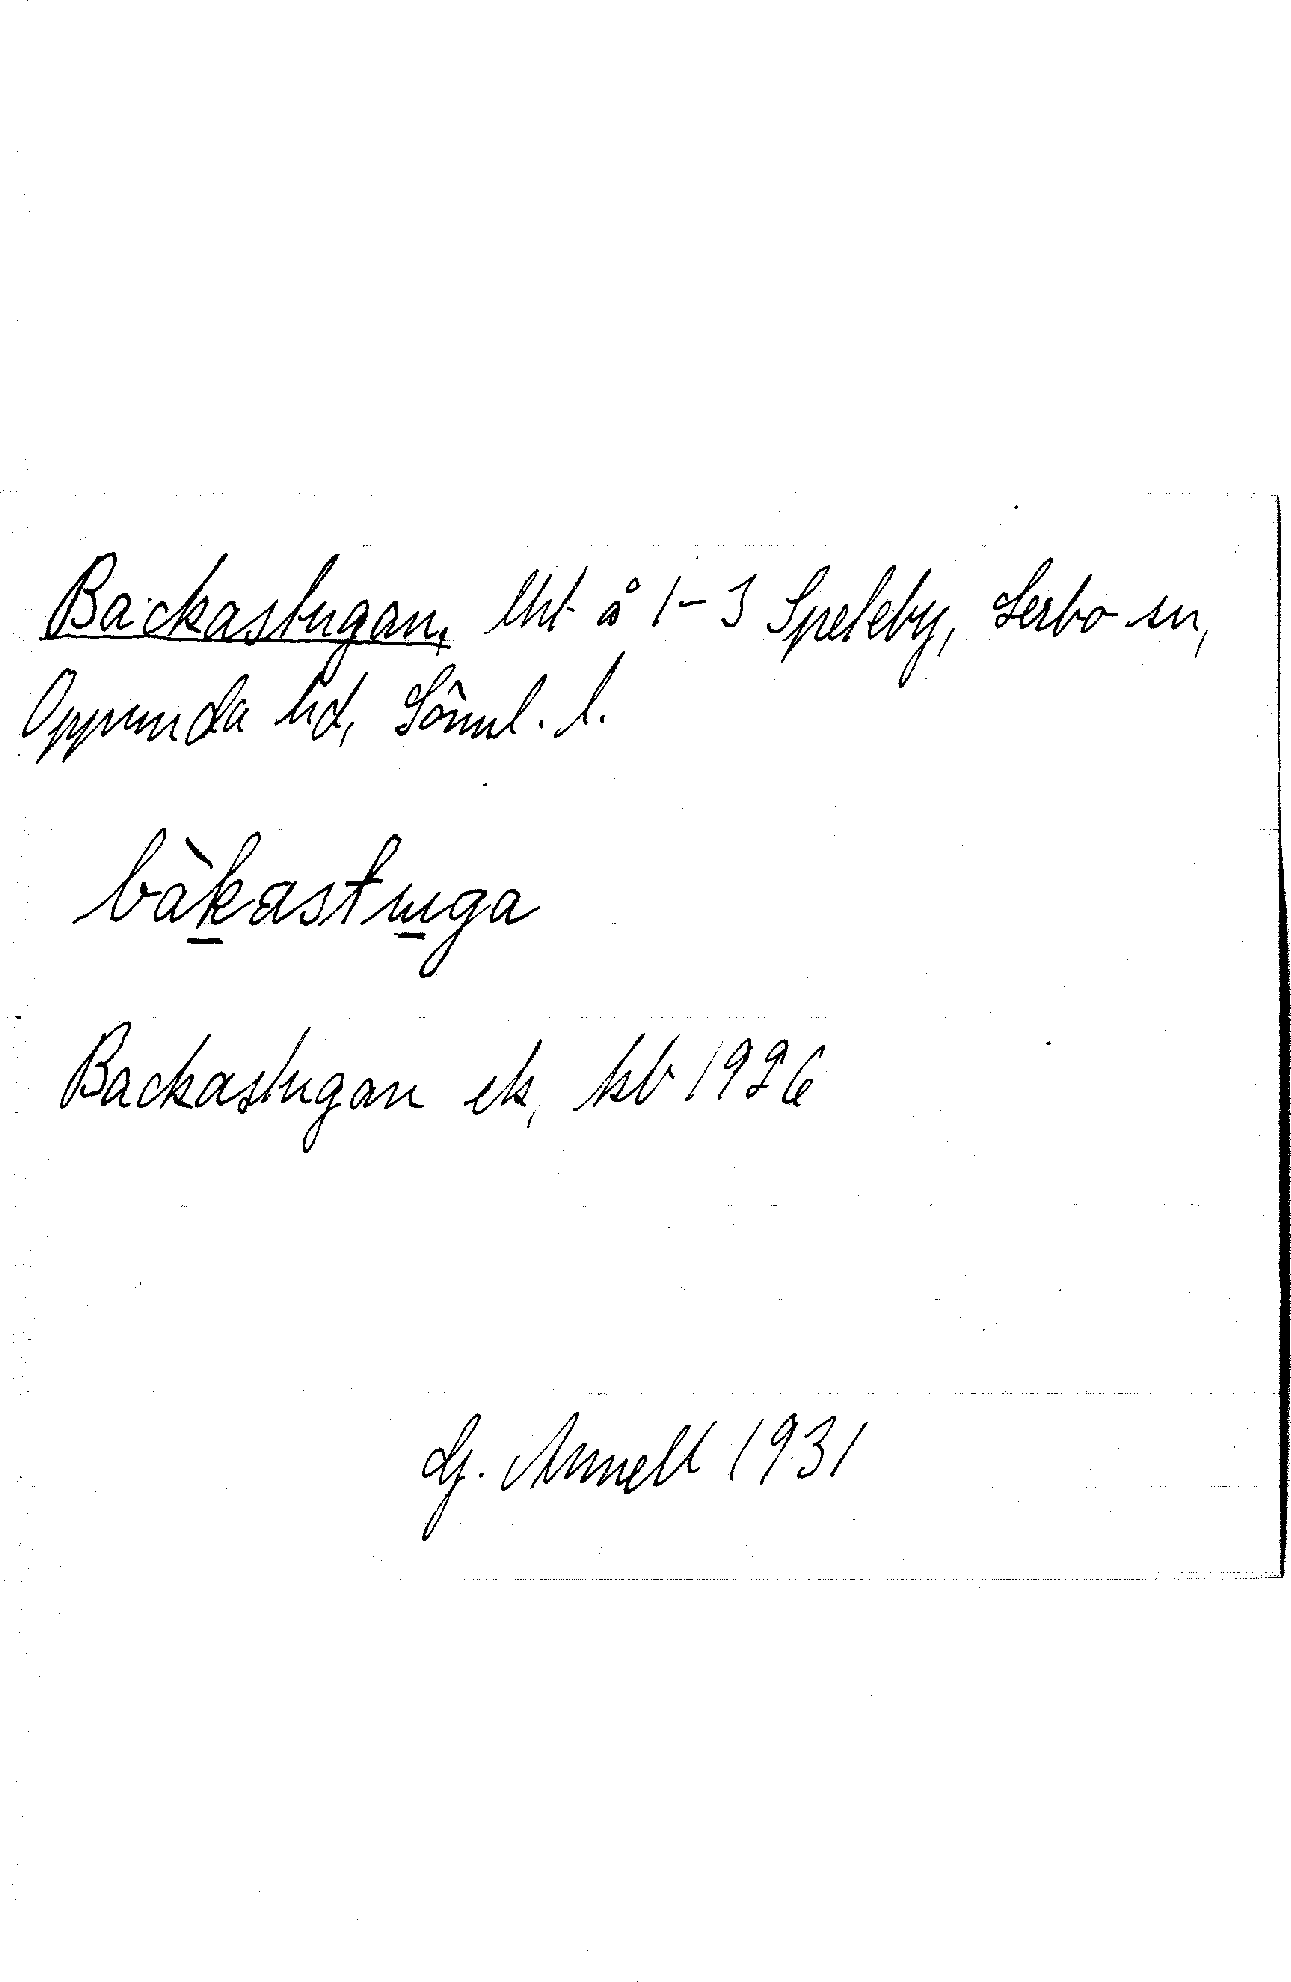 Backastugan, lht å 1-3 Speteby, Lerbo sn,
Oppunda hd, Söml. l.
bàkastuga
Backastugan ek, kb 1926
G. Annell 1931